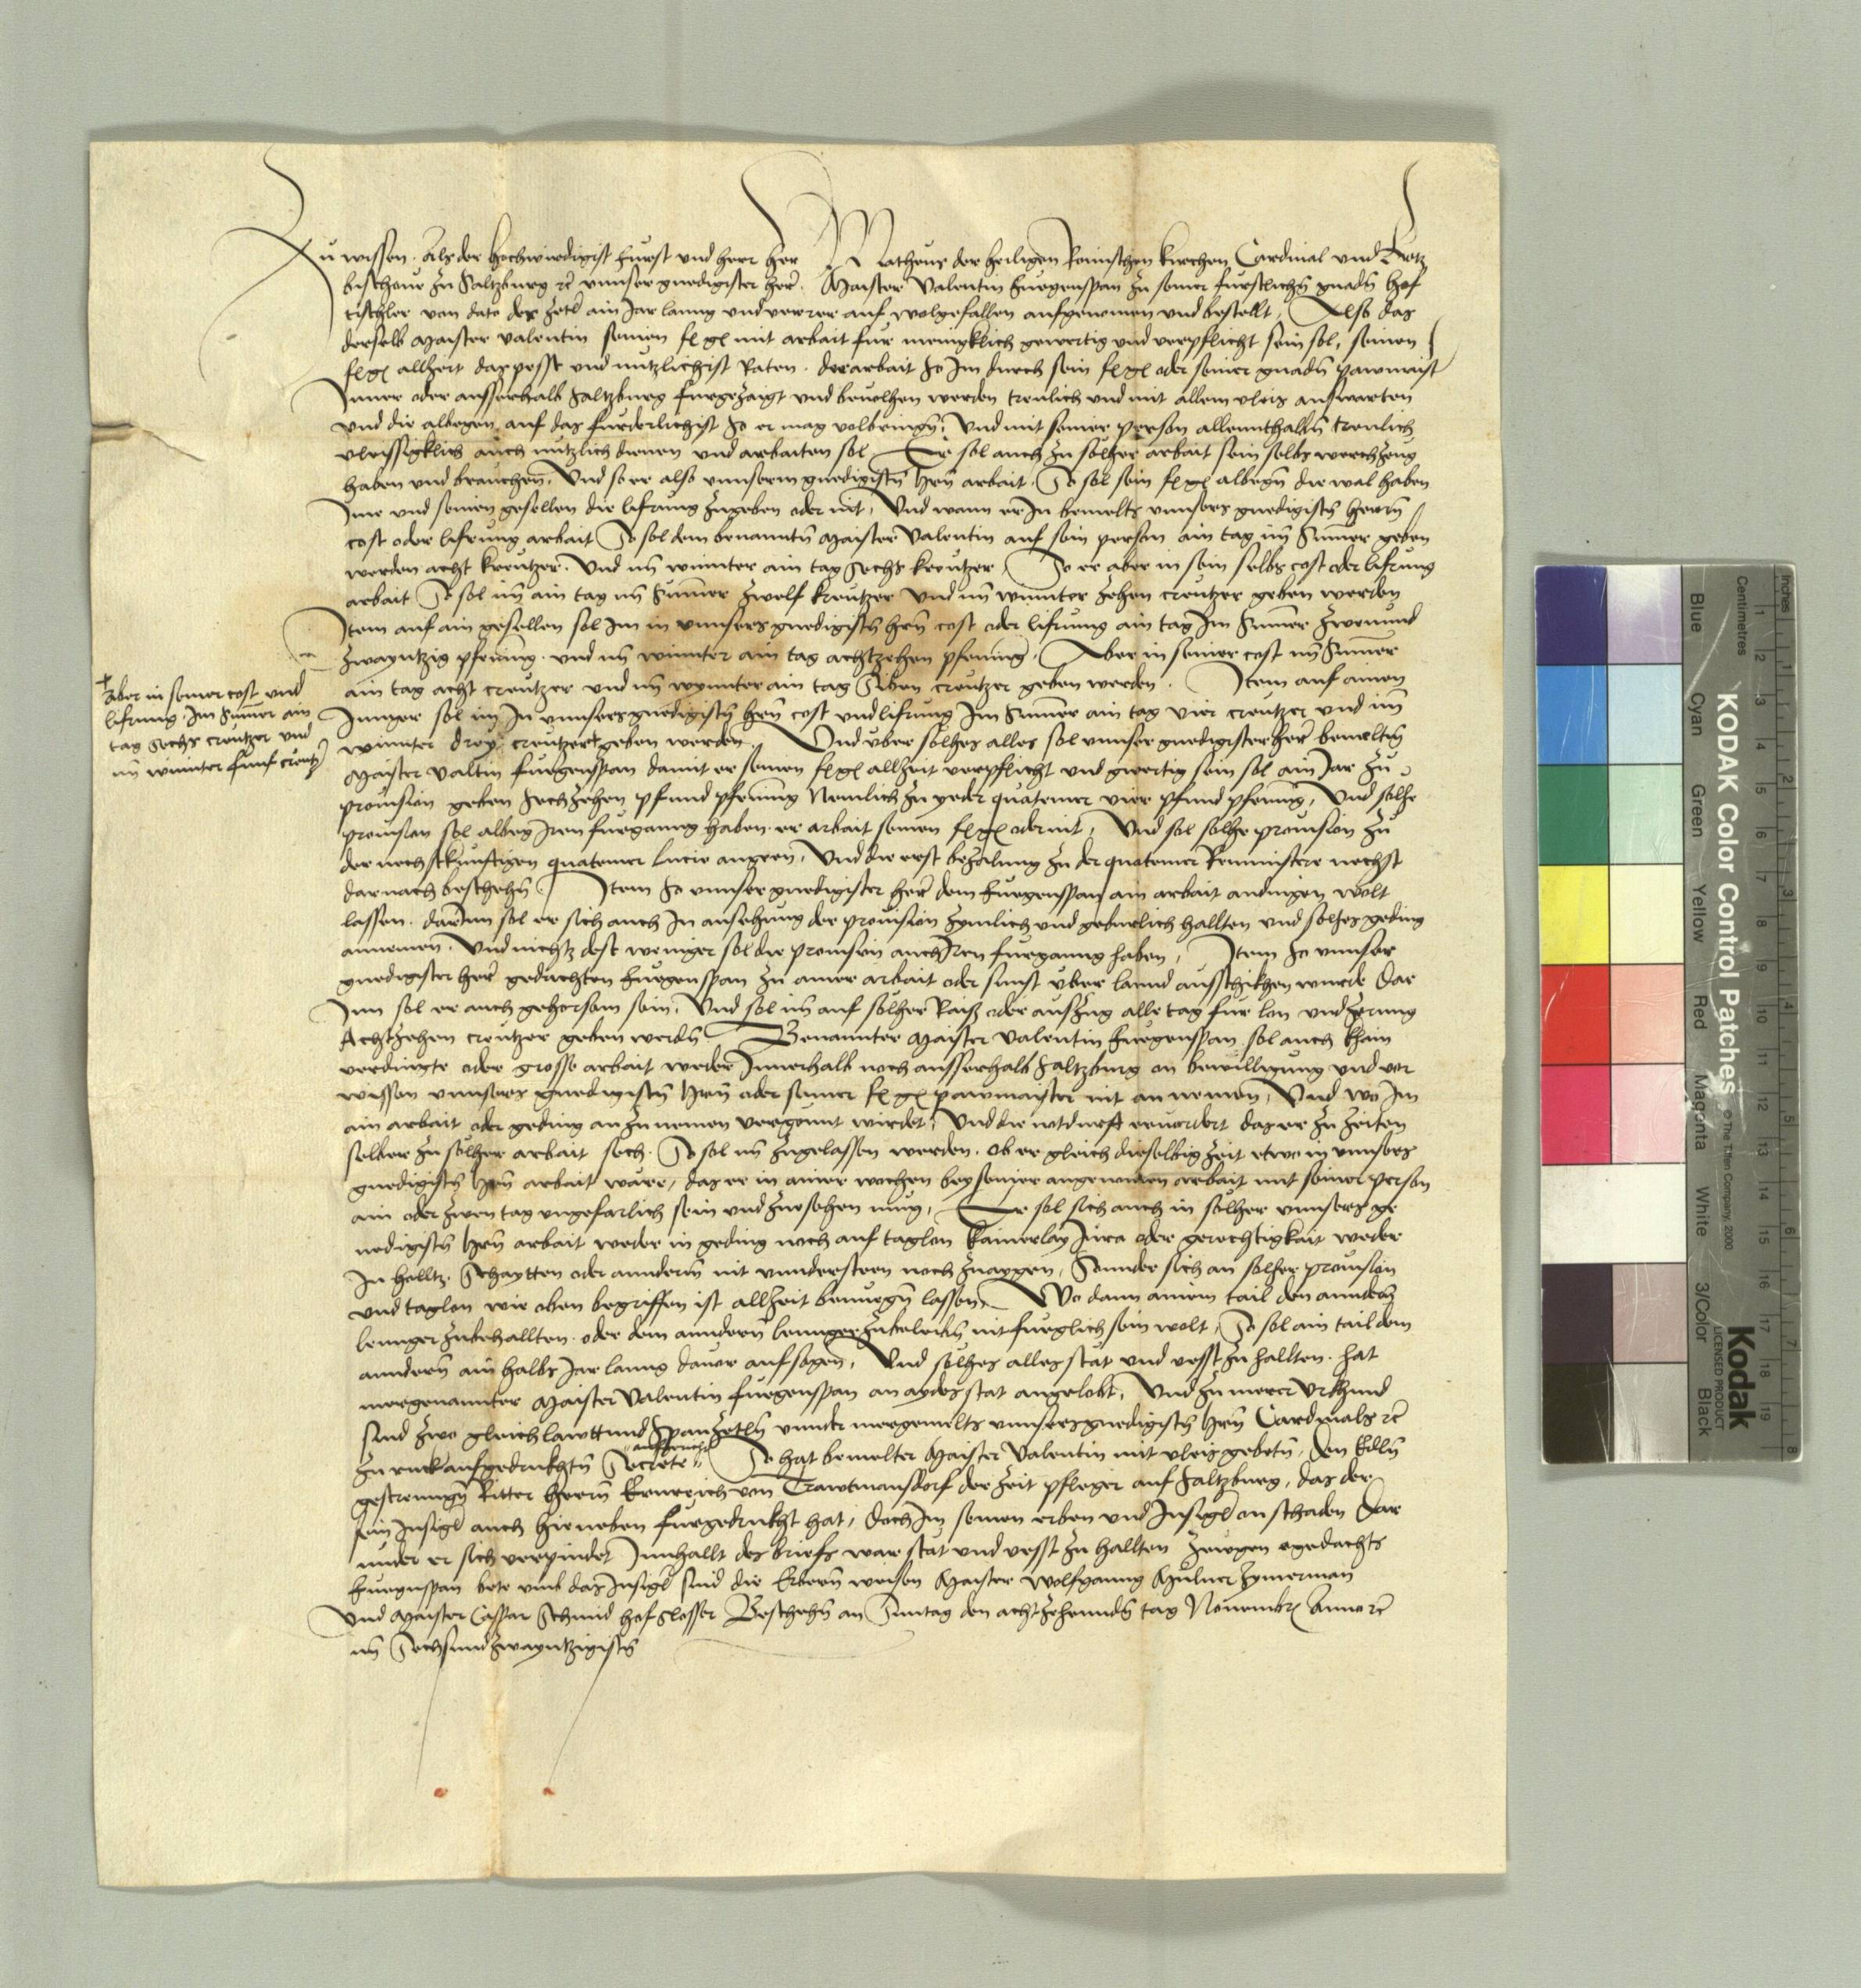 Zu wissen. Als der hochwirdigist Furst und herr her Matheus der heiligen Romischen kirchen Cardinal und Ertz
bischove zu Saltzburg etc unnser gnedigister her. Maister Valentin Furgenspan zu seiner furstlichn gnadn hof
tischler von dato der zetl ain Jar lanng und verrer auf wolgefallen aufgenomen und bestellt, Also das
derselb Maister Valentin seinen f g mit arbait fur menigklich gewertig und verpflicht sein sol, seinen
f g allzeit das pesst und nutzlichist Raten. der arbait so Im durch sein f g oder seiner gnadn pawmaist
Inner oder ausserhalb Saltzburg furgezaigt und bevolhen werden treulich und mit allem vleis auswarten
und die albegen auf das furderlichist so er mag volbringn, Und mit seiner person allennthalbn treulich
vleissigklich auch nutzlich dienen und arbaiten sol Er sol auch zu solher arbait sein selbs werchzeug
haben und brauchen, Und so er also unnserm gnedigistn hern arbait. So sol sein f g albegn die wal haben
Ime und seinen gesellen die lifrung zugeben oder nit, Und wann er In bemelts unnsers gnedigistn herrn
cost oder lifrung arbait So sol dem benanntn Maister Valentin auf sein person ain tag im Sumer geben
werden acht kreutzer. Und im winnter ain tag sechs kreutzer, So er aber in sein selbs cost oder lifrung
arbait So sol im ain tag im Sumer zwelf kreutzer und im winnter zehen creutzer geben werden
Item auf ain gesellen sol Im in unnsers gnedigistn hern cost oder lifrung ain tag Im Sumer zwenund
zwayntzig pfening. und im winnter ain tag achtzehen pfening. Aber in seiner cost im Sumer
ain tag acht creutzer und im wynnter ain tag siben creutzer geben werden. Item auf ainen
Junger sol im In unnsers gnedigistn hern cost und lifrung Im Sumer ain tag vier creutzer und im
winnter drey creutzer + geben werden. Und uber solhes alles sol unnser gnedigister her bemeltm
+ Aber in seiner cost und
lifrung Im Sumer ain
tag sechs creutzer und
im winnter funf creutz
Maister Valtin furgenspan damit er seinen f g allzeit verpflicht und gwertig sein sol ain Jar zu
provision geben sechzehen pfund pfening Nemlich zu yeder quatemer vier pfund pfening, Und solhe
provision sol albeg Iren furganng haben. er arbait seinen f g oder nit, Und sol solhe provision zu
der nechstkunftigen quatemer Lucie angeen, Und die erst bezalung zu der quatemer Reminiscere nechst
darnach beschehn. Item So unnser gnedigister her dem Furgenspan ain arbait andingen wolt
lassen. darinn sol er sich auch In ansehung der provision zymlich und geburlich hallten und solhes geding
annemen. Und nichtz dest weniger sol die provision auch Iren furganng haben, Item So unnser
gnedigister her gedachten Furgenspan zu ainer arbait oder sunst uber lannd ausschikhen wurde Dar
Inn sol er auch gehorsam sein, Und sol im auf solher Raiß oder auszug alle tag fur lon und zerung
Achtzehen creutzer geben werdn Benannter Maister Valentin Furgenspan sol auch khain
verdingte oder grosse arbait weder Innerhalb noch ausserhalb Saltzburg on bewilligung und vor
wissen unnsers gnedigistn hern oder seiner f g pawmaister nit annemen, Und wo Im
ain arbait oder geding anzunemen vergonnt wirdet, Und die notdurft ervordert das er zu zeiten
selber zu solher arbait sech. So sol im zugelassen werden. ob er gleich dieselbig zeit etwo in unnsers
gnedigistn hern arbait ware, das er in ainer wochen bey seiner angenomen arbait mit seiner person
ain oder zwen tag ungefarlich sein und zuesehen mug, Er sol sich auch in solher unnsers ge
nedigistn hern arbait weder in geding noch auf taglon kainerlay Jura oder gerechtigkait weder
In holltz Schaytten oder annderm nit unndersteen noch zuaygen, Sunnder sich an solher provision
und taglon wie oben begriffen ist allzeit benuegn lassen, Wo dann ainem tail den anndern
lennger zubehallten. oder dem anndern lennger zubeleibn nit fueglich sein wolt, So sol ain tail dem
anndern ain halbs Jar lanng davor aufsagen, Und solhes alles stat und vesst zu hallten. hat
mergenannter Maister Valentin furgenspan an aydes stat angelobt, Und zu merer Urkhund
sind zwo gleichlawttund Spanzetln unnder mergemelts unnsers gnedigistn hern Cardinals etc
zuruckaufgedrukhtn Secrete So hat bemelter Maister Valentin mit vleis gebetn, Den Edln
gestrenngn Ritter herrn Ernreich von Trawtmanstorf der zeit pfleger auf Saltzburg, das der
sein Insigl auch hieneben furgedrukht hat, doch Im seinen erben und Insigl on schaden Dar
under er sich verpindet Innhallt des briefs war stat und vesst zu hallten Zewgen egedachts
Furgnspan bete umb das Insigl sind die Erbern weisen Maister Wolfganng Mulner Zymerman
Und Maister Caspar Schmid hofslosser Beschehn an Suntag den achtzehenndn tag Novembr Anno etc
im Sechsundzwayntzigistn
KODAK Color Control Patches © The Tiffen Company, 2000
Kodak
LICENSED PRODUCT
Inches
Centimetres
Blue
Cyan
Green
Yellow
Red
Magenta
White
3/Color
Black